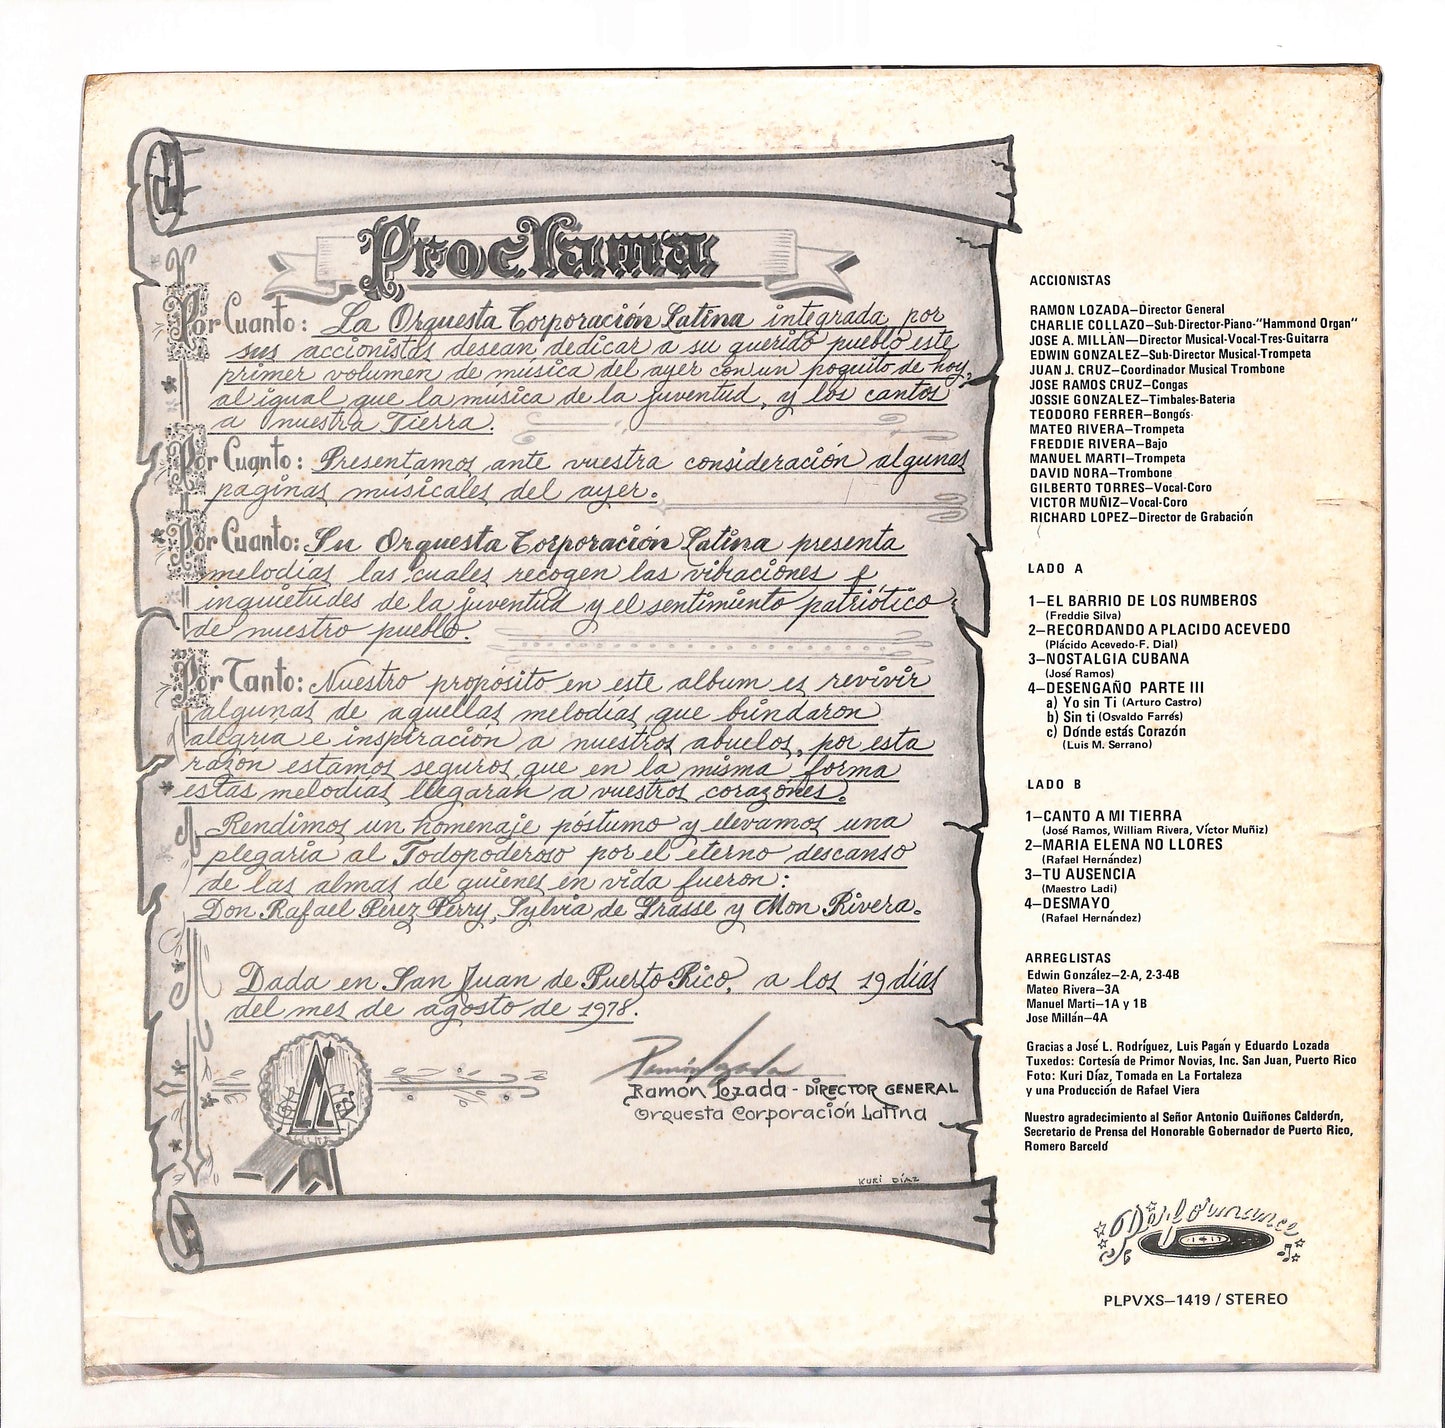 Proclama
Por Cuanto: La Orquesta Corporación Latina integrada por
sus accionistas desean dedicar a su querido pueblo este
primer volumen de musica del ayer con un poquito de hoy,
al igual que la música de la juventud, y los cantos
a nuestra Tierra.
Por Cuanto: Presentamos ante vuestra consideración algunas
paginas musicales del ayer.
Por Cuanto: Su Orquesta Corporación Latina presenta
melodías las cuales recogen las vibraciones e
inquietudes de la juventud y el sentimiento patriótico
de nuestro pueblo.
Por Tanto: Nuestro propósito en este album es revivir
algunas de aquellas melodías que brindaron
alegria e inspiración a nuestros abuelos, por esta
razón estamos seguros que en la misma forma
estas melodías llegaran a vuestros corazónes.
Rendimos un homenaje póstumo y elevamos una
plegaria al Todopoderoso por el eterno descanso
de las almas de quiénes en vida fueron:
Don Rafael Pérez Perry, Sylvia de Grasse y Mon Rivera.
Dada en San Juan de Puerto Rico, a los 19 días
del mes de agosto de 1978.
Ramón Lozada
Ramón Lozada - DIRECTOR GENERAL
Orquesta Corporación Latina
KURI DÍAZ
ACCIONISTAS
RAMON LOZADA—Director General
CHARLIE COLLAZO—Sub-Director-Piano-"Hammond Organ"
JOSE A. MILLAN—Director Musical-Vocal-Tres-Guitarra
EDWIN GONZALEZ—Sub-Director Musical-Trompeta
JUAN J. CRUZ—Coordinador Musical Trombone
JOSE RAMOS CRUZ—Congas
JOSSIE GONZALEZ—Timbales-Bateria
TEODORO FERRER—Bongós
MATEO RIVERA—Trompeta
FREDDIE RIVERA—Bajo
MANUEL MARTI—Trompeta
DAVID NORA—Trombone
GILBERTO TORRES—Vocal-Coro
VICTOR MUÑIZ—Vocal-Coro
RICHARD LOPEZ—Director de Grabación
LADO A
1—EL BARRIO DE LOS RUMBEROS
(Freddie Silva)
2—RECORDANDO A PLACIDO ACEVEDO
(Plácido Acevedo-F. Dial)
3—NOSTALGIA CUBANA
(José Ramos)
4—DESENGAÑO PARTE III
a) Yo sin Ti (Arturo Castro)
b) Sin ti (Osvaldo Farrés)
c) Dónde estás Corazón
(Luis M. Serrano)
LADO B
1—CANTO A MI TIERRA
(José Ramos, William Rivera, Víctor Muñiz)
2—MARIA ELENA NO LLORES
(Rafael Hernández)
3—TU AUSENCIA
(Maestro Ladi)
4—DESMAYO
(Rafael Hernández)
ARREGLISTAS
Edwin González—2-A, 2-3-4B
Mateo Rivera—3A
Manuel Marti—1A y 1B
Jose Millán—4A
Gracias a José L. Rodríguez, Luis Pagán y Eduardo Lozada
Tuxedos: Cortesía de Primor Novias, Inc. San Juan, Puerto Rico
Foto: Kuri Díaz, Tomada en La Fortaleza
y una Producción de Rafael Viera
Nuestro agradecimiento al Señor Antonio Quiñones Calderón,
Secretario de Prensa del Honorable Gobernador de Puerto Rico,
Romero Barceló
Performance
PLPVXS—1419 / STEREO